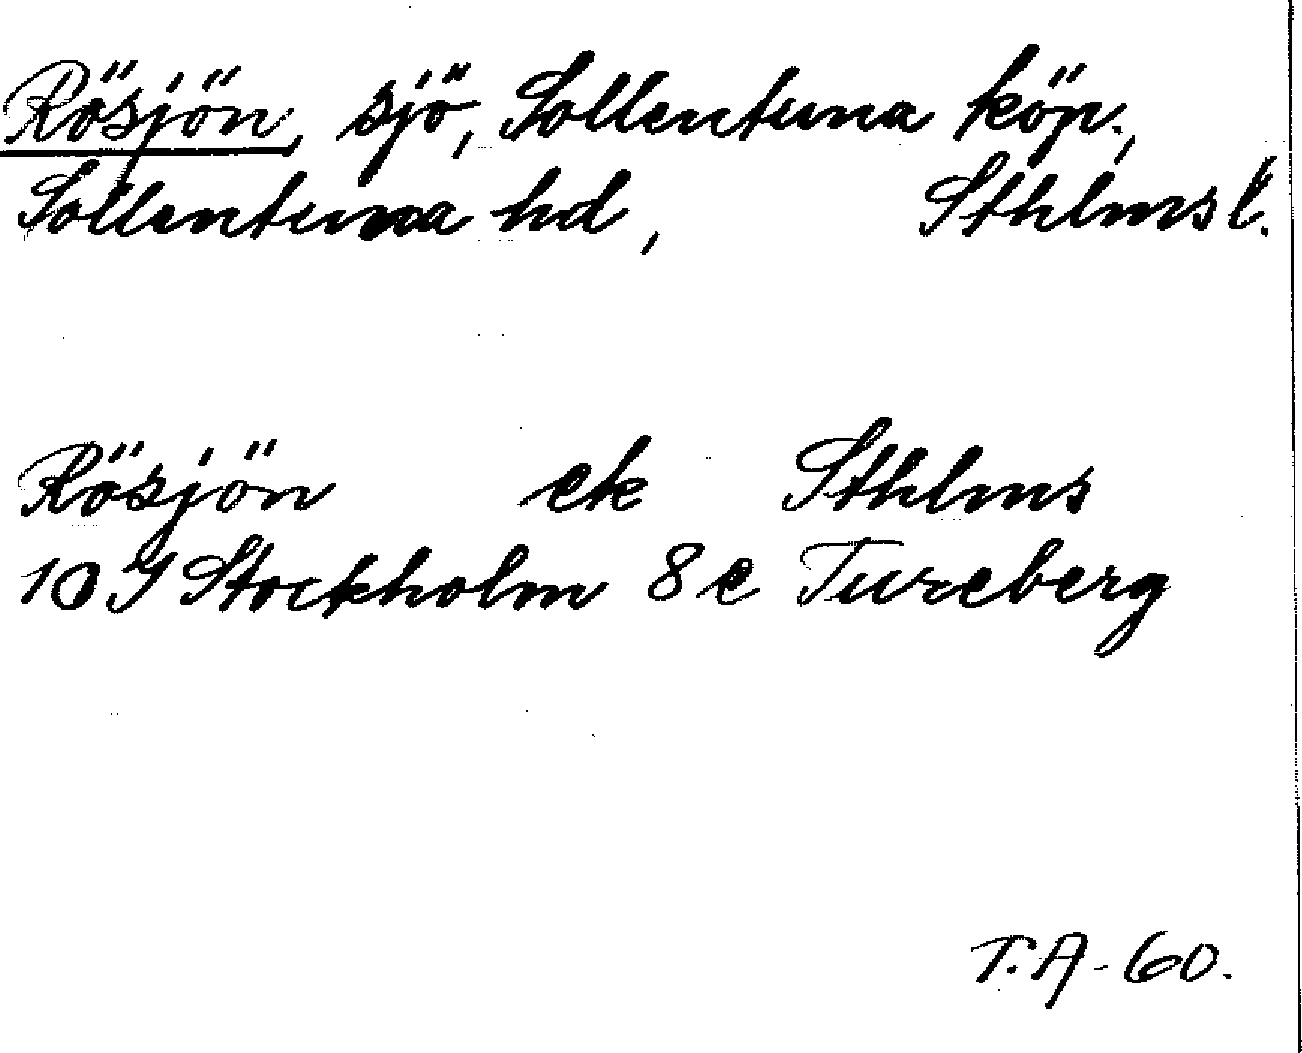 Rösjön, sjö, Sollentuna köp.,
Sollentuna hd, Sthlms l.
Rösjön ek Sthlms
10 I Stockholm 8 e Tureberg
T.A-60.